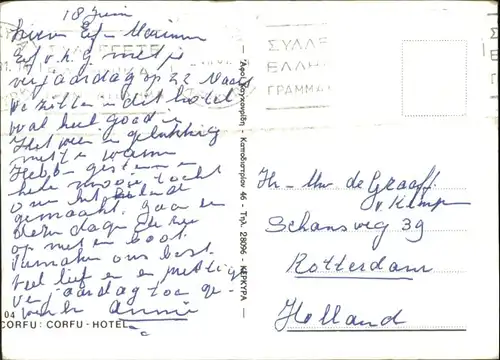 18 Juni
Lieve Ef en
Ef v. h. G met je
verjaardag op 22
we zitten in dit hotel
wat heel goed is
Het weer is gelukkig
niet te warm
Hebben gisteren een
hele mooie tocht
om het eiland
gemaakt. gaan
deze dagen de zee
op met een boot.
Vermaken ons best.
veel liefs en een prettige
verjaardag toe ge-
Annie
04
CORFU: CORFU-HOTEL
Καποδιστρίου 46 - Τηλ. 28096 - ΚΕΡΚΥΡΑ
ΣΥΛΛΕ
ΕΛΛΗ
ΓΡΑΜΜΑ
Hr. - Mw. de Graaff.
v. Kampen
Schansweg 39
Rotterdam
Holland